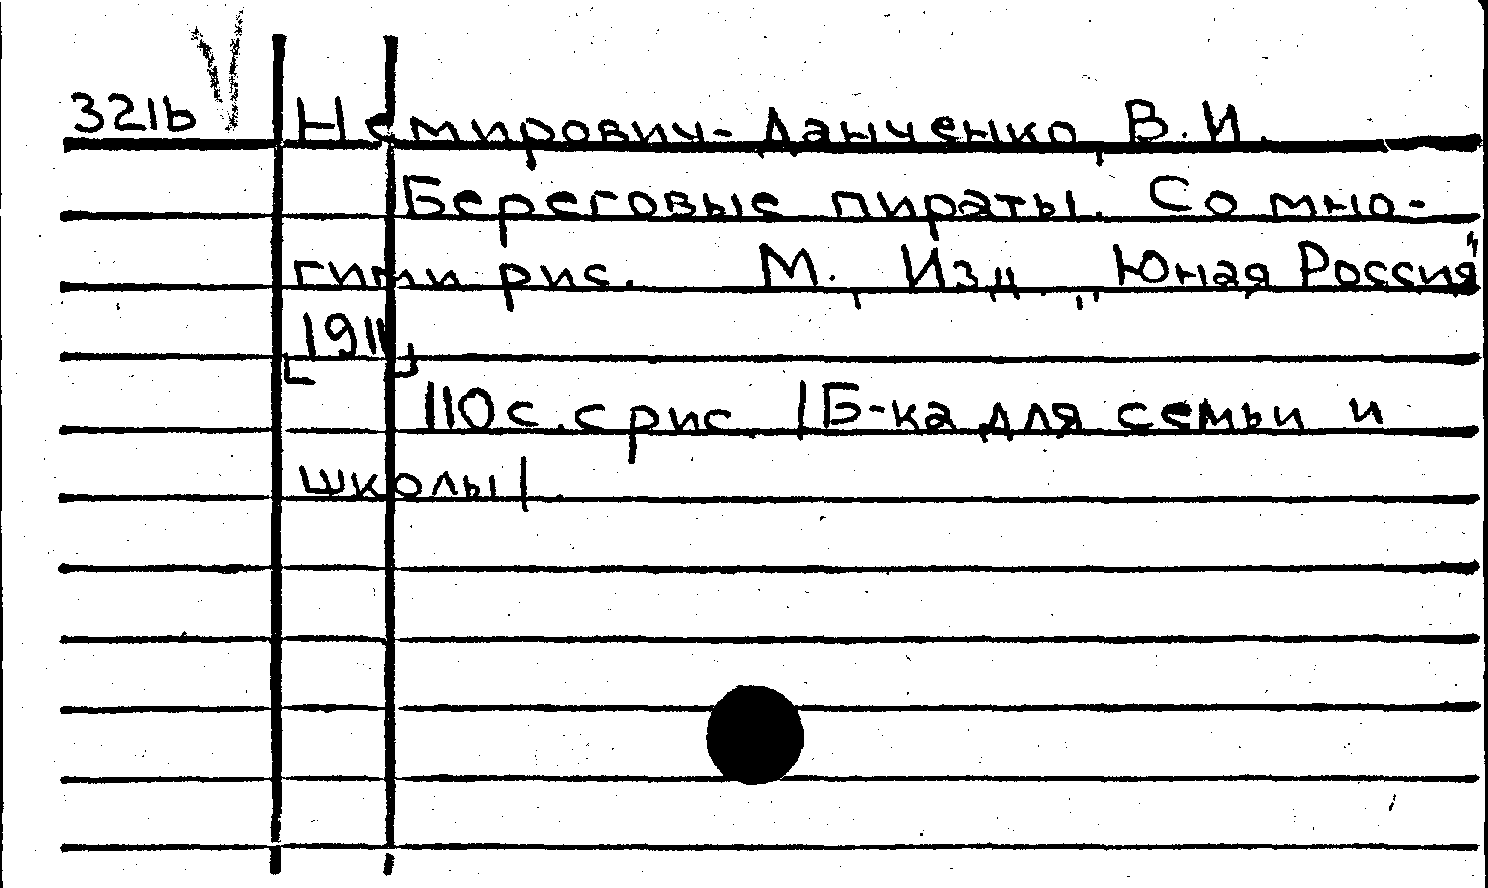 321b Немирович-Данченко, В.И.
Береговые пираты. Со мно-
гими рис. М., Изд. „Юная Россия",
[1911]
110 с. с рис. /Б-ка для семьи и
школы/.